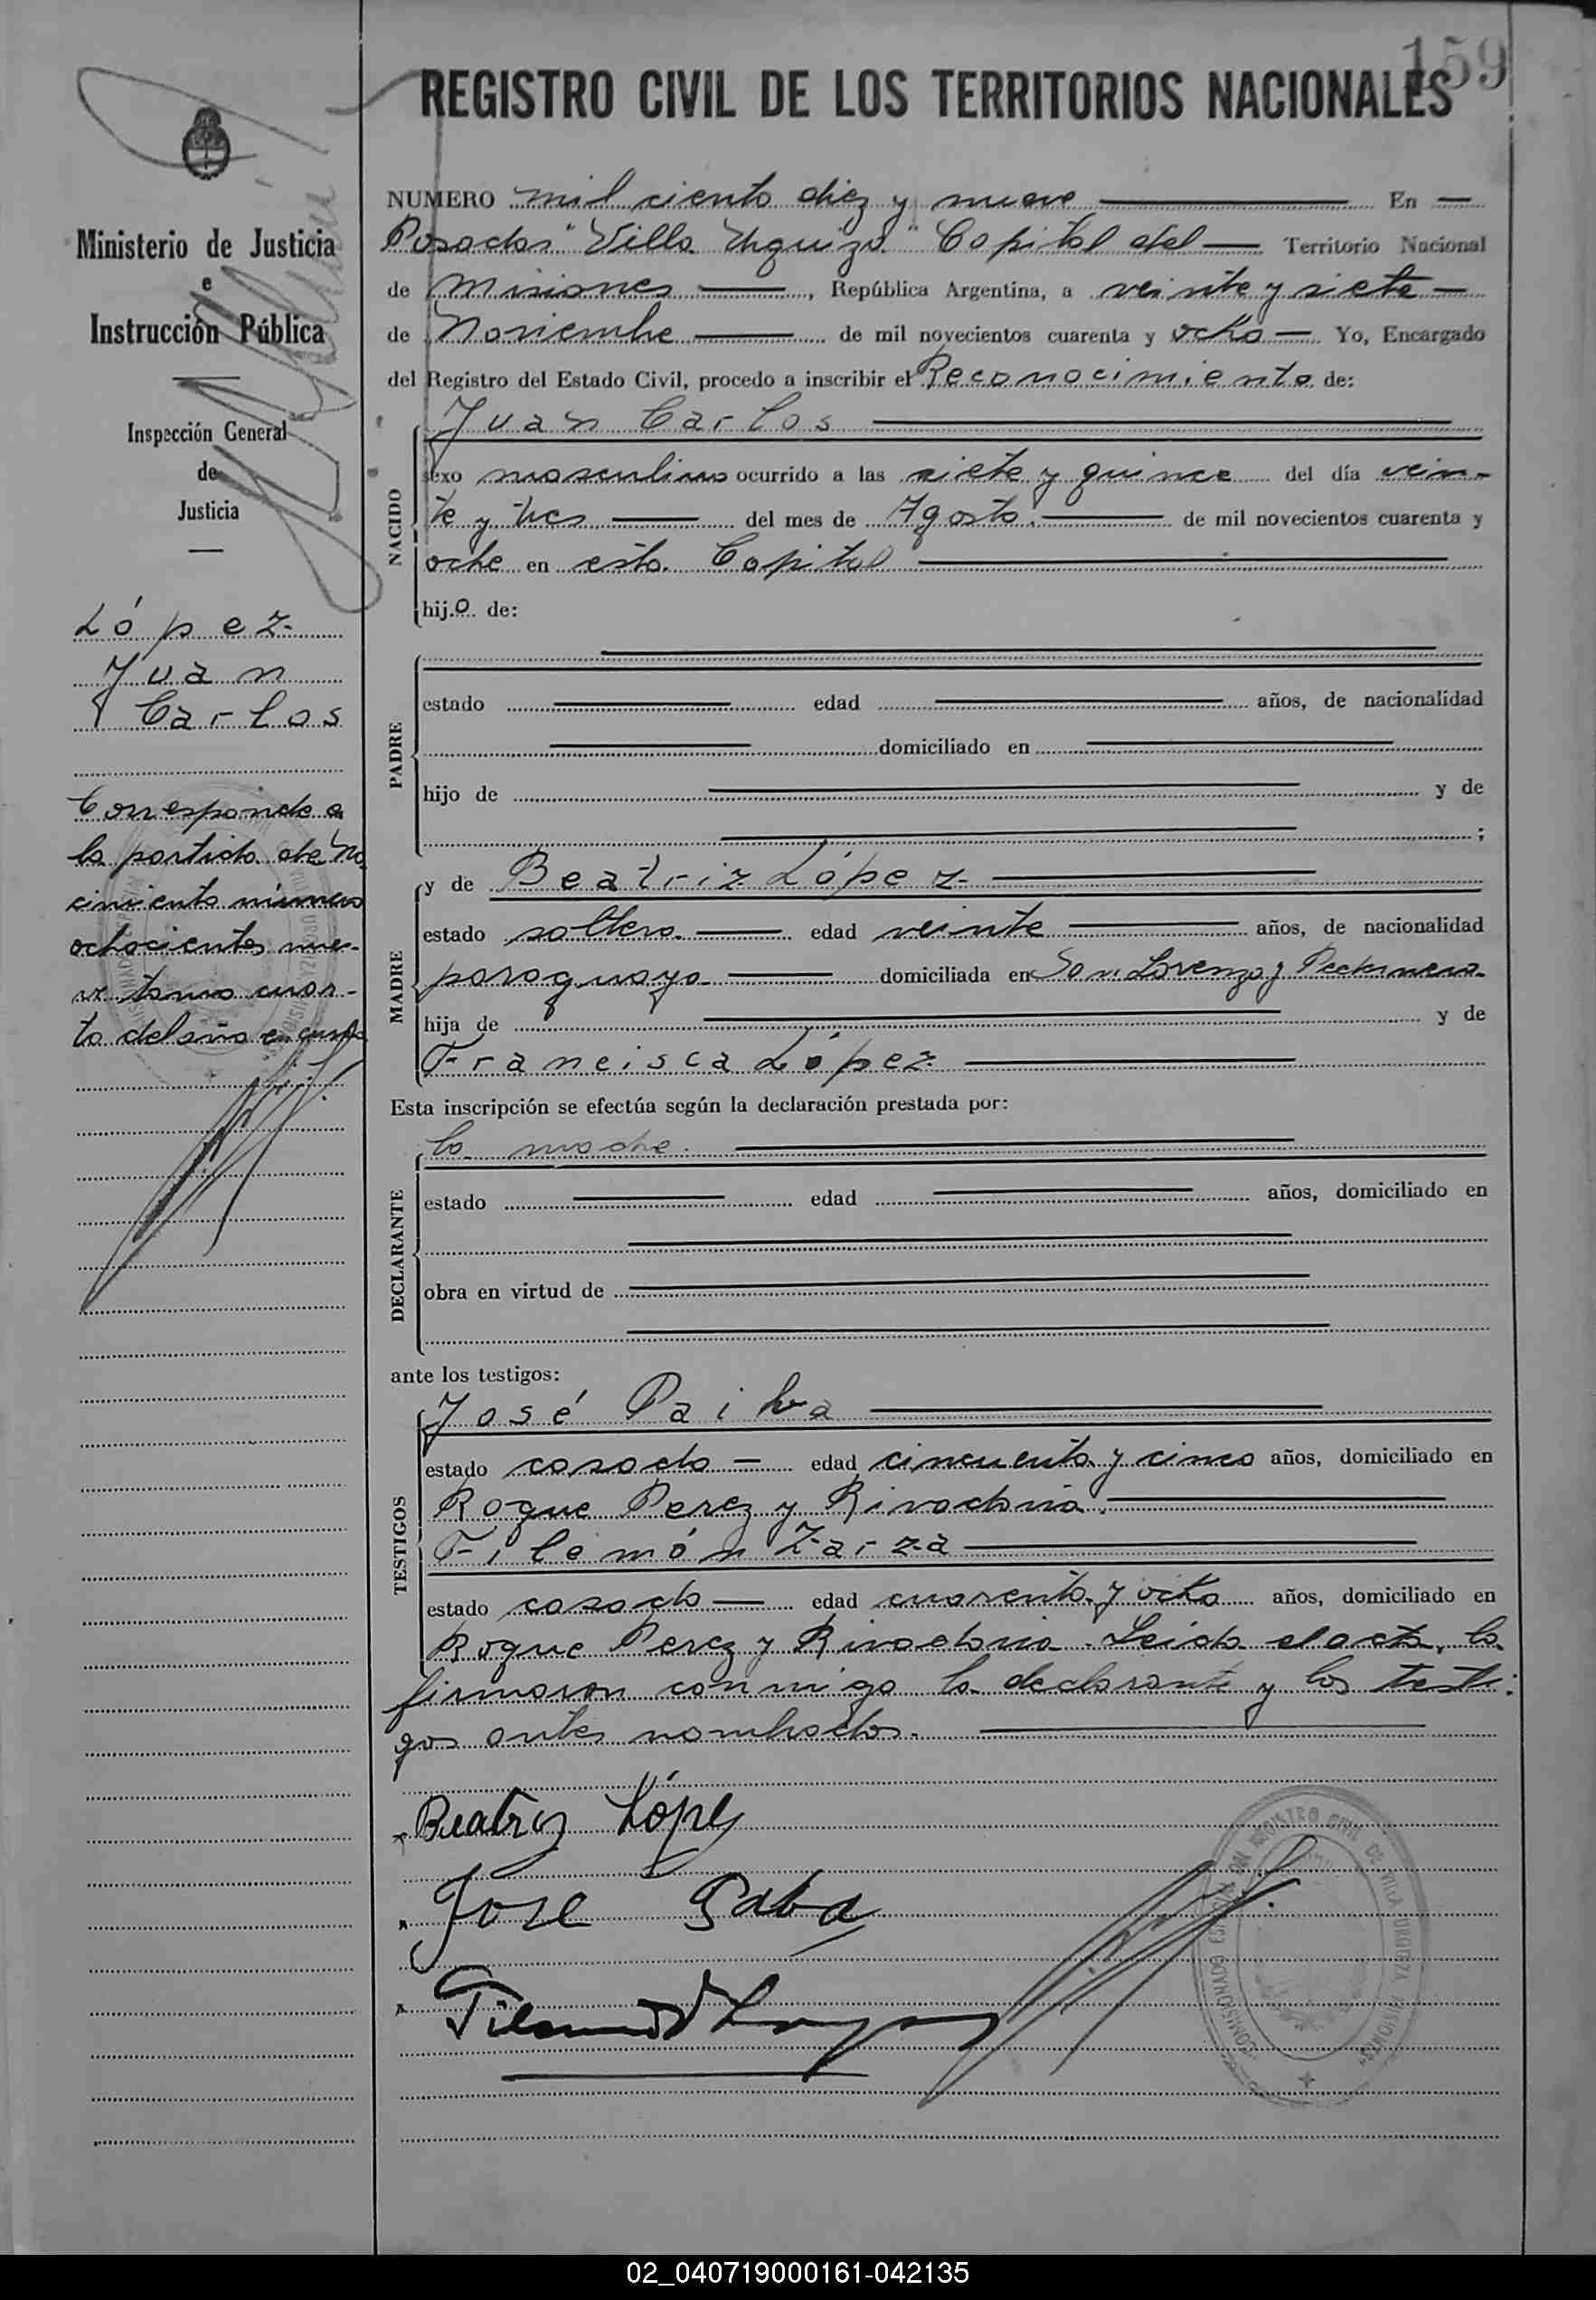 159
REGISTRO CIVIL DE LOS TERRITORIOS NACIONALES
Ministerio de Justicia
e
Instrucción Pública
Inspección General
de
Justicia
López
Juan
Carlos
Corresponde a
la partida de Na
cimiento número
ochocientos nue-
ve tomo cuar-
to del año en curso
NUMERO mil ciento diez y nueve En
Posadas "Villa Urquiza" Capital del Territorio Nacional
de Misiones, República Argentina, a veinte y siete
de Noviembre de mil novecientos cuarenta y ocho Yo, Encargado
del Registro del Estado Civil, procedo a inscribir el Reconocimiento de:
NACIDO
Juan Carlos
sexo masculino ocurrido a las siete y quince del día vein-
te y tres del mes de Agosto. de mil novecientos cuarenta y
ocho en esta Capital
hijo de:
PADRE
estado edad años, de nacionalidad
domiciliado en
hijo de y de
;
MADRE
y de Beatriz López
estado soltera edad veinte años, de nacionalidad
paraguaya domiciliada en San Lorenzo y
hija de y de
Francisca López
Esta inscripción se efectúa según la declaración prestada por:
DECLARANTE
la madre.
estado edad años, domiciliado en
obra en virtud de
ante los testigos:
TESTIGOS
José Paiba
estado casado edad cincuenta y cinco años, domiciliado en
Roque Perez y Rivadavia.
Filemón Zarza
estado casado edad cuarenta y ocho años, domiciliado en
Roque Perez y Rivadavia. Leida el acta, la
firmaron conmigo la declarante y los testi-
gos antes nombrados.
Beatriz López
Jose Paba
REGISTRO CIVIL DE VILLA URQUIZA MISIONES
02_040719000161-042135